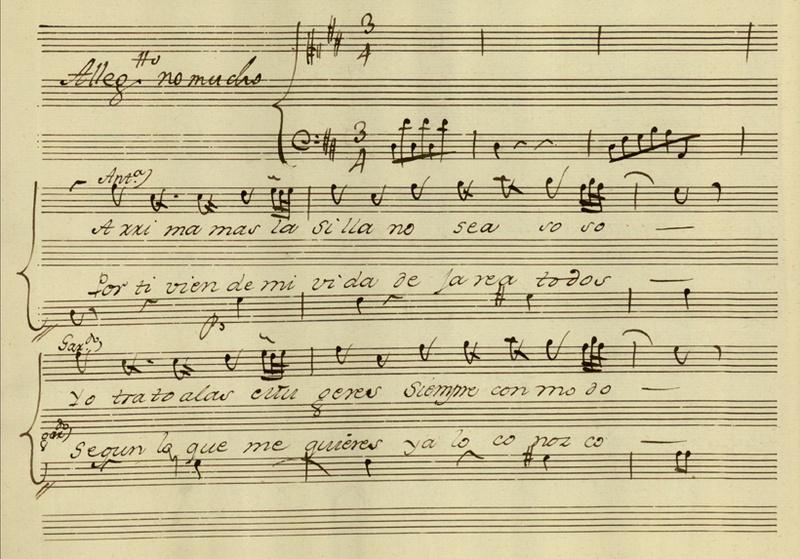 Alleg.tto no mucho
3/4
3/4
Ant.a)
Arri ma mas la Silla no sea so so —
Por ti vien de mi vida de Jarea todos —
p.o
Gar.do)
Yo trato alas mu geres Siempre con mo do —
gar.do)
Segun lo que me quieres ya lo co noz co —